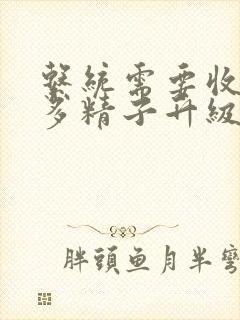 繫統需要收
多精子升級
胖頭鱼月半彎